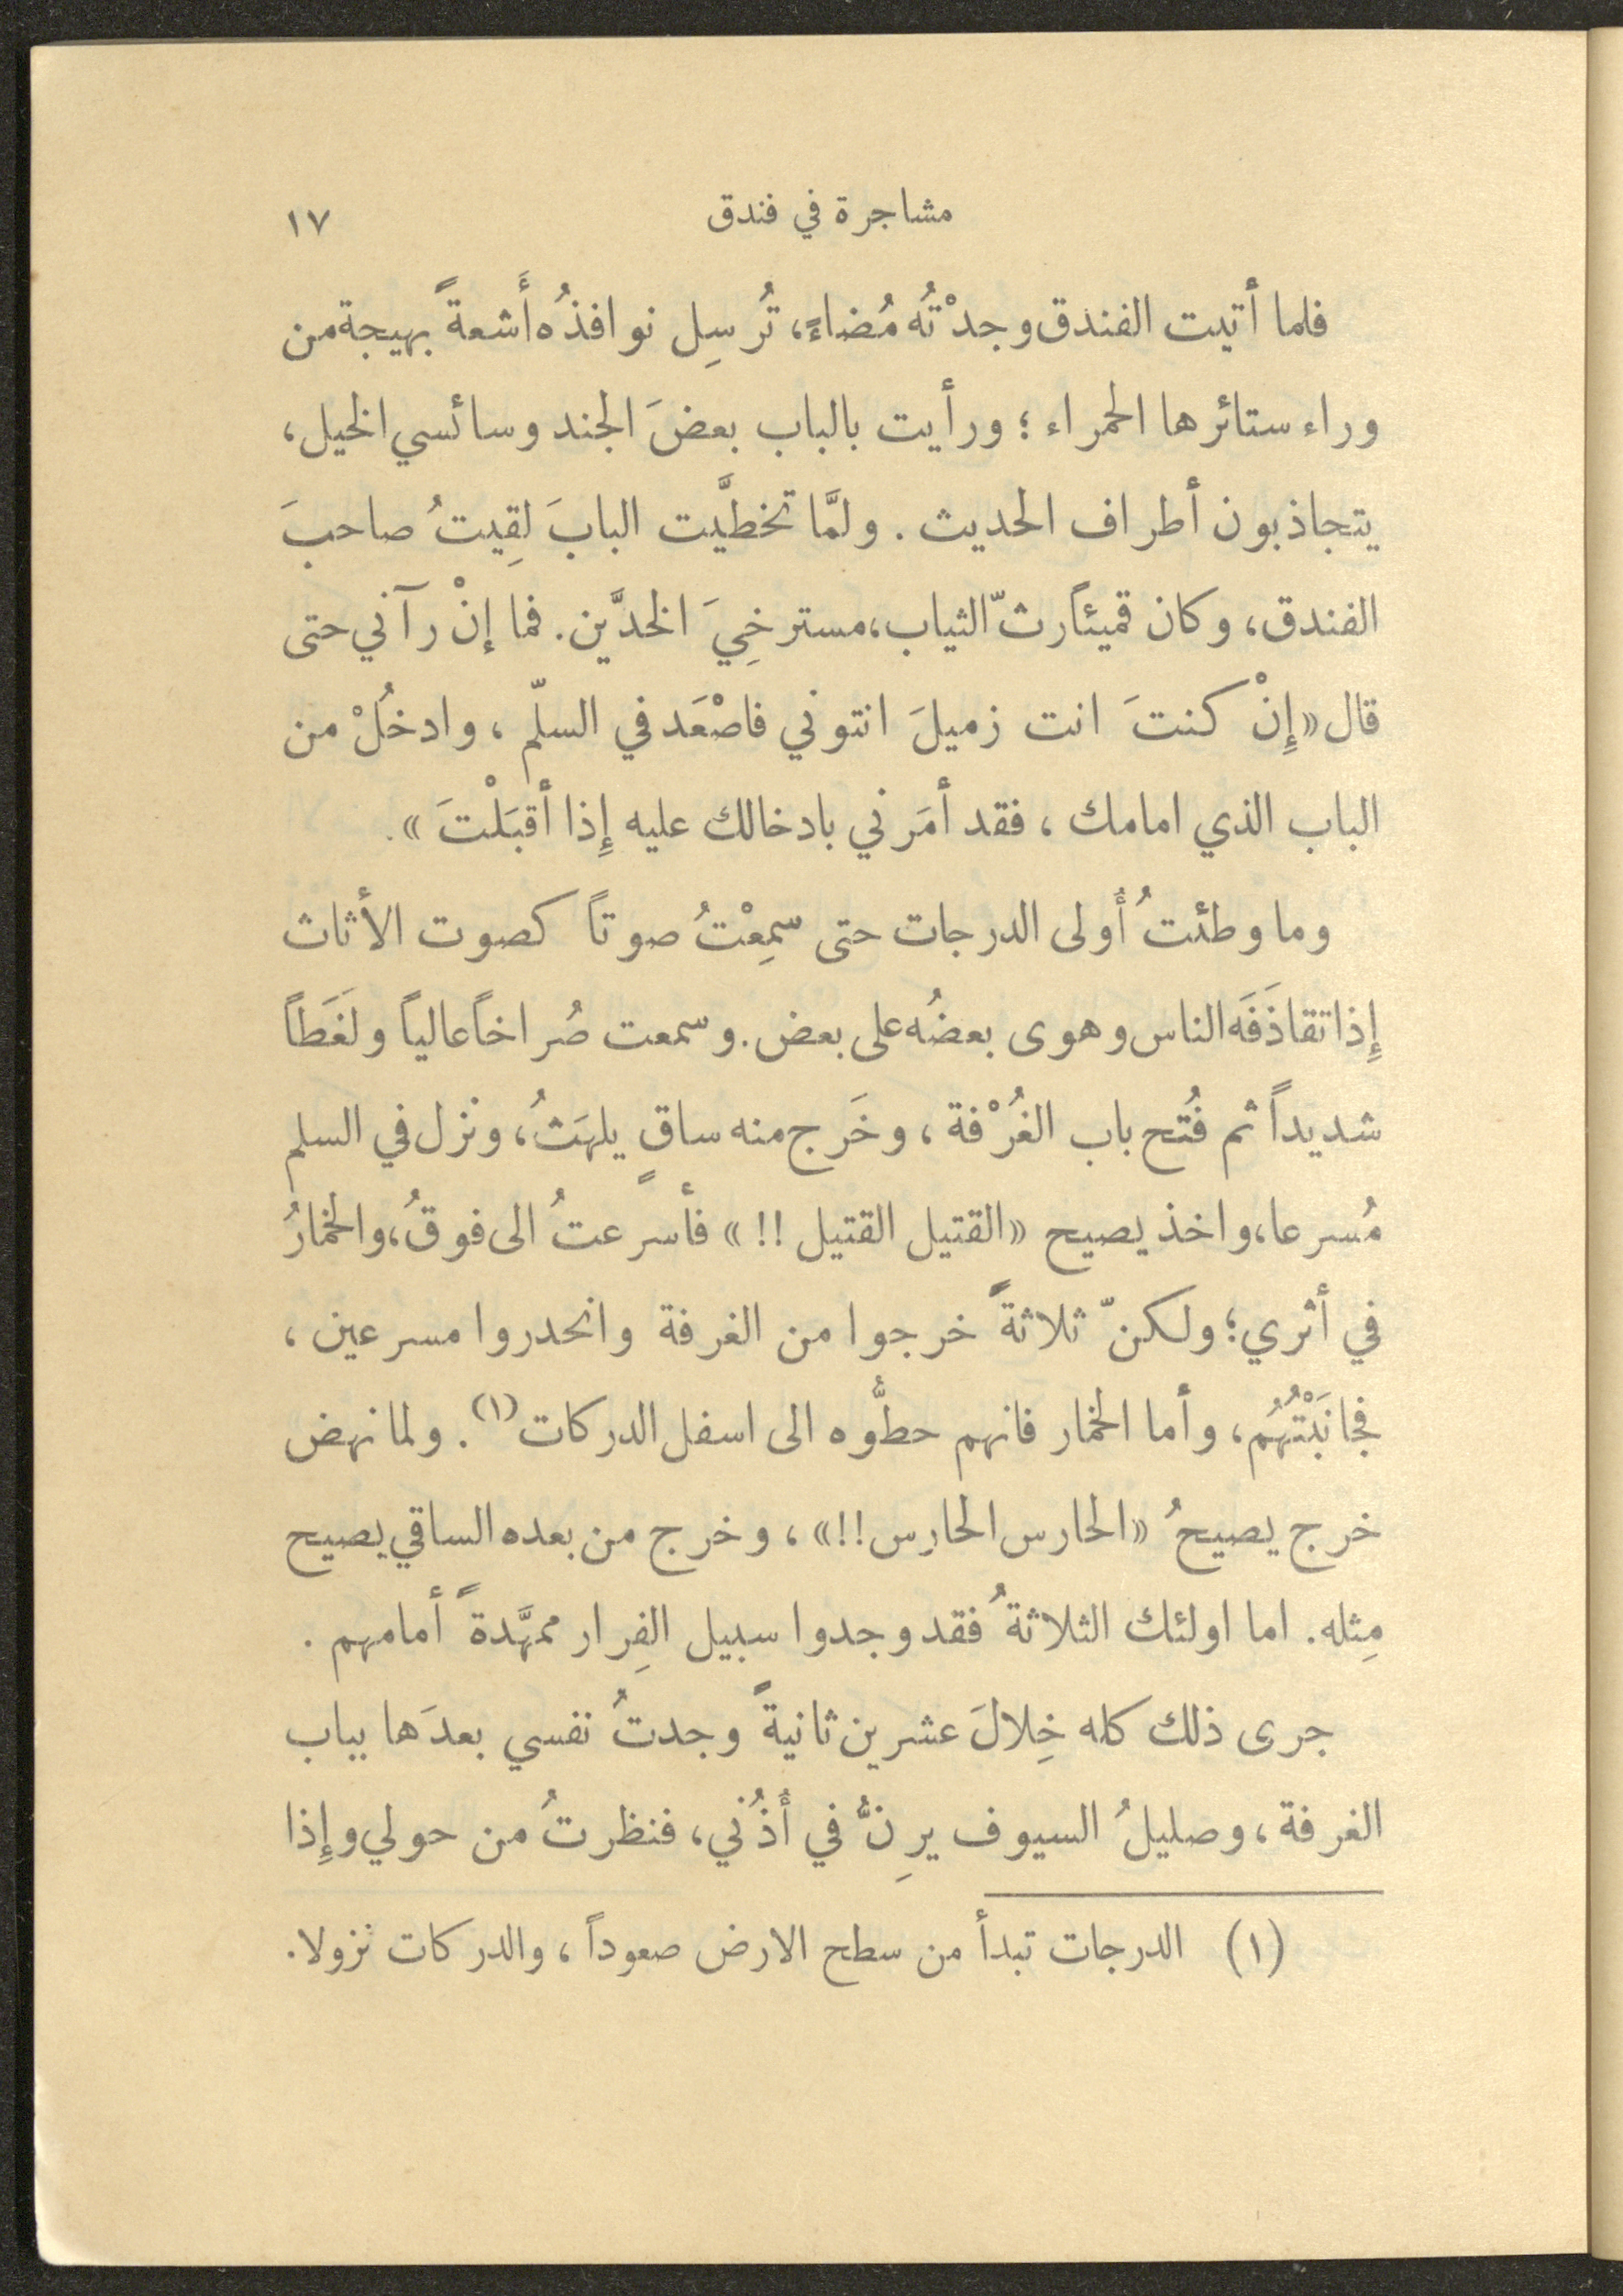 مشاجرة في فندق ١٧
فلما أتيت الفندق وجدْتُه مُضاءً، تُرسِل نوافذُه أَشعةً بهيجة من
وراء ستائرها الحمراء ؛ ورأيت بالباب بعضَ الجند وسائسي الخيل،
يتجاذبون أطراف الحديث . ولمَّا تخطَّيت البابَ لقِيتُ صاحبَ
الفندق، وكان قميئاً رثّ الثياب، مسترخِيَ الخدَّين. فما إنْ رآني حتى
قال «إِنْ كنتَ انت زميلَ انتوني فاصْعَد في السلّم ، وادخُلْ من
الباب الذي امامك ، فقد أمَرني بادخالك عليه إِذا أقبَلْتَ ».
وما وطئتُ أُولى الدرجات حتى سمِعْتُ صوتاً كصوت الأثاث
إِذا تقاذَفَه الناس وهوى بعضُه على بعض. وسمعت صُراخاً عالياً ولغَطاً
شديداً ثم فُتح باب الغُرْفة ، وخَرج منه ساقٍ يلهَثُ، ونزل في السلم
مُسرعا، واخذ يصيح «القتيل القتيل !!» فأسرعتُ الى فوقُ، والخمارُ
في أثري؛ ولكنّ ثلاثةً خرجوا من الغرفة وانحدروا مسرعين ،
فجانَبْتُهُم، وأما الخمار فانهم حطُّوه الى اسفل الدركات (١). ولما نهض
خرج يصيحُ «الحارس الحارس!!» ، وخرج من بعده الساقي يصيح
مِثله. اما اولئك الثلاثةُ فقد وجدوا سبيل الفِرار ممهَّدةً أمامهم .
جرى ذلك كله خِلالَ عشرين ثانيةً وجدتُ نفسي بعدَها بباب
الغرفة ، وصليلُ السيوف يرِنُّ في أُذُني، فنظرتُ من حولي وإِذا
(١) الدرجات تبدأ من سطح الارض صعوداً ، والدركات نزولا.